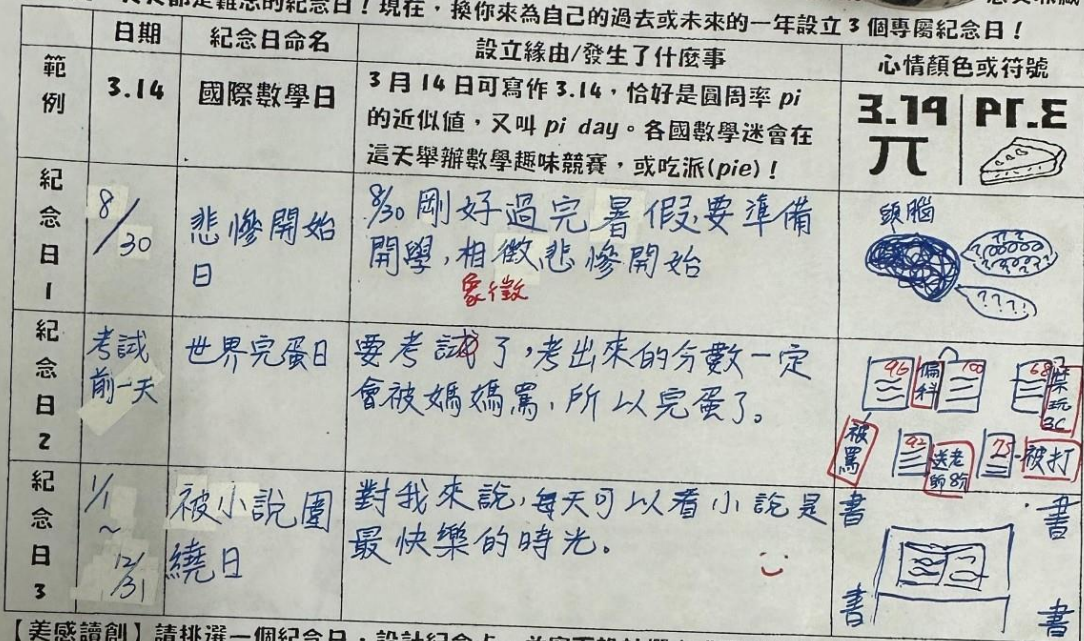 天都是難忘的紀念日！現在，換你來為自己的過去或未來的一年設立3個專屬紀念日！
日期 紀念日命名 設立緣由/發生了什麼事 心情顏色或符號
範例
3.14 國際數學日
3月14日可寫作3.14，恰好是圓周率pi
的近似值，又叫pi day。各國數學迷會在
這天舉辦數學趣味競賽，或吃派(pie)！
3.14 PI.E
π
紀念日1
8/30
悲慘開始
日
8/30剛好過完暑假要準備
開學，相徵悲慘開始
象徵
頭腦
????
紀念日2
考試
前一天
世界完蛋日
要考試了，考出來的分數一定
會被媽媽罵，所以完蛋了。
96 偏科 100 68 禁玩3C
被罵 92 送老師8分 75 被打
紀念日3
1/1
~
12/31
被小說圍
繞日
對我來說，每天可以看小說是
最快樂的時光。
書 書
書 書
【美感讀創】請挑選一個紀念日，設計紀念卡，